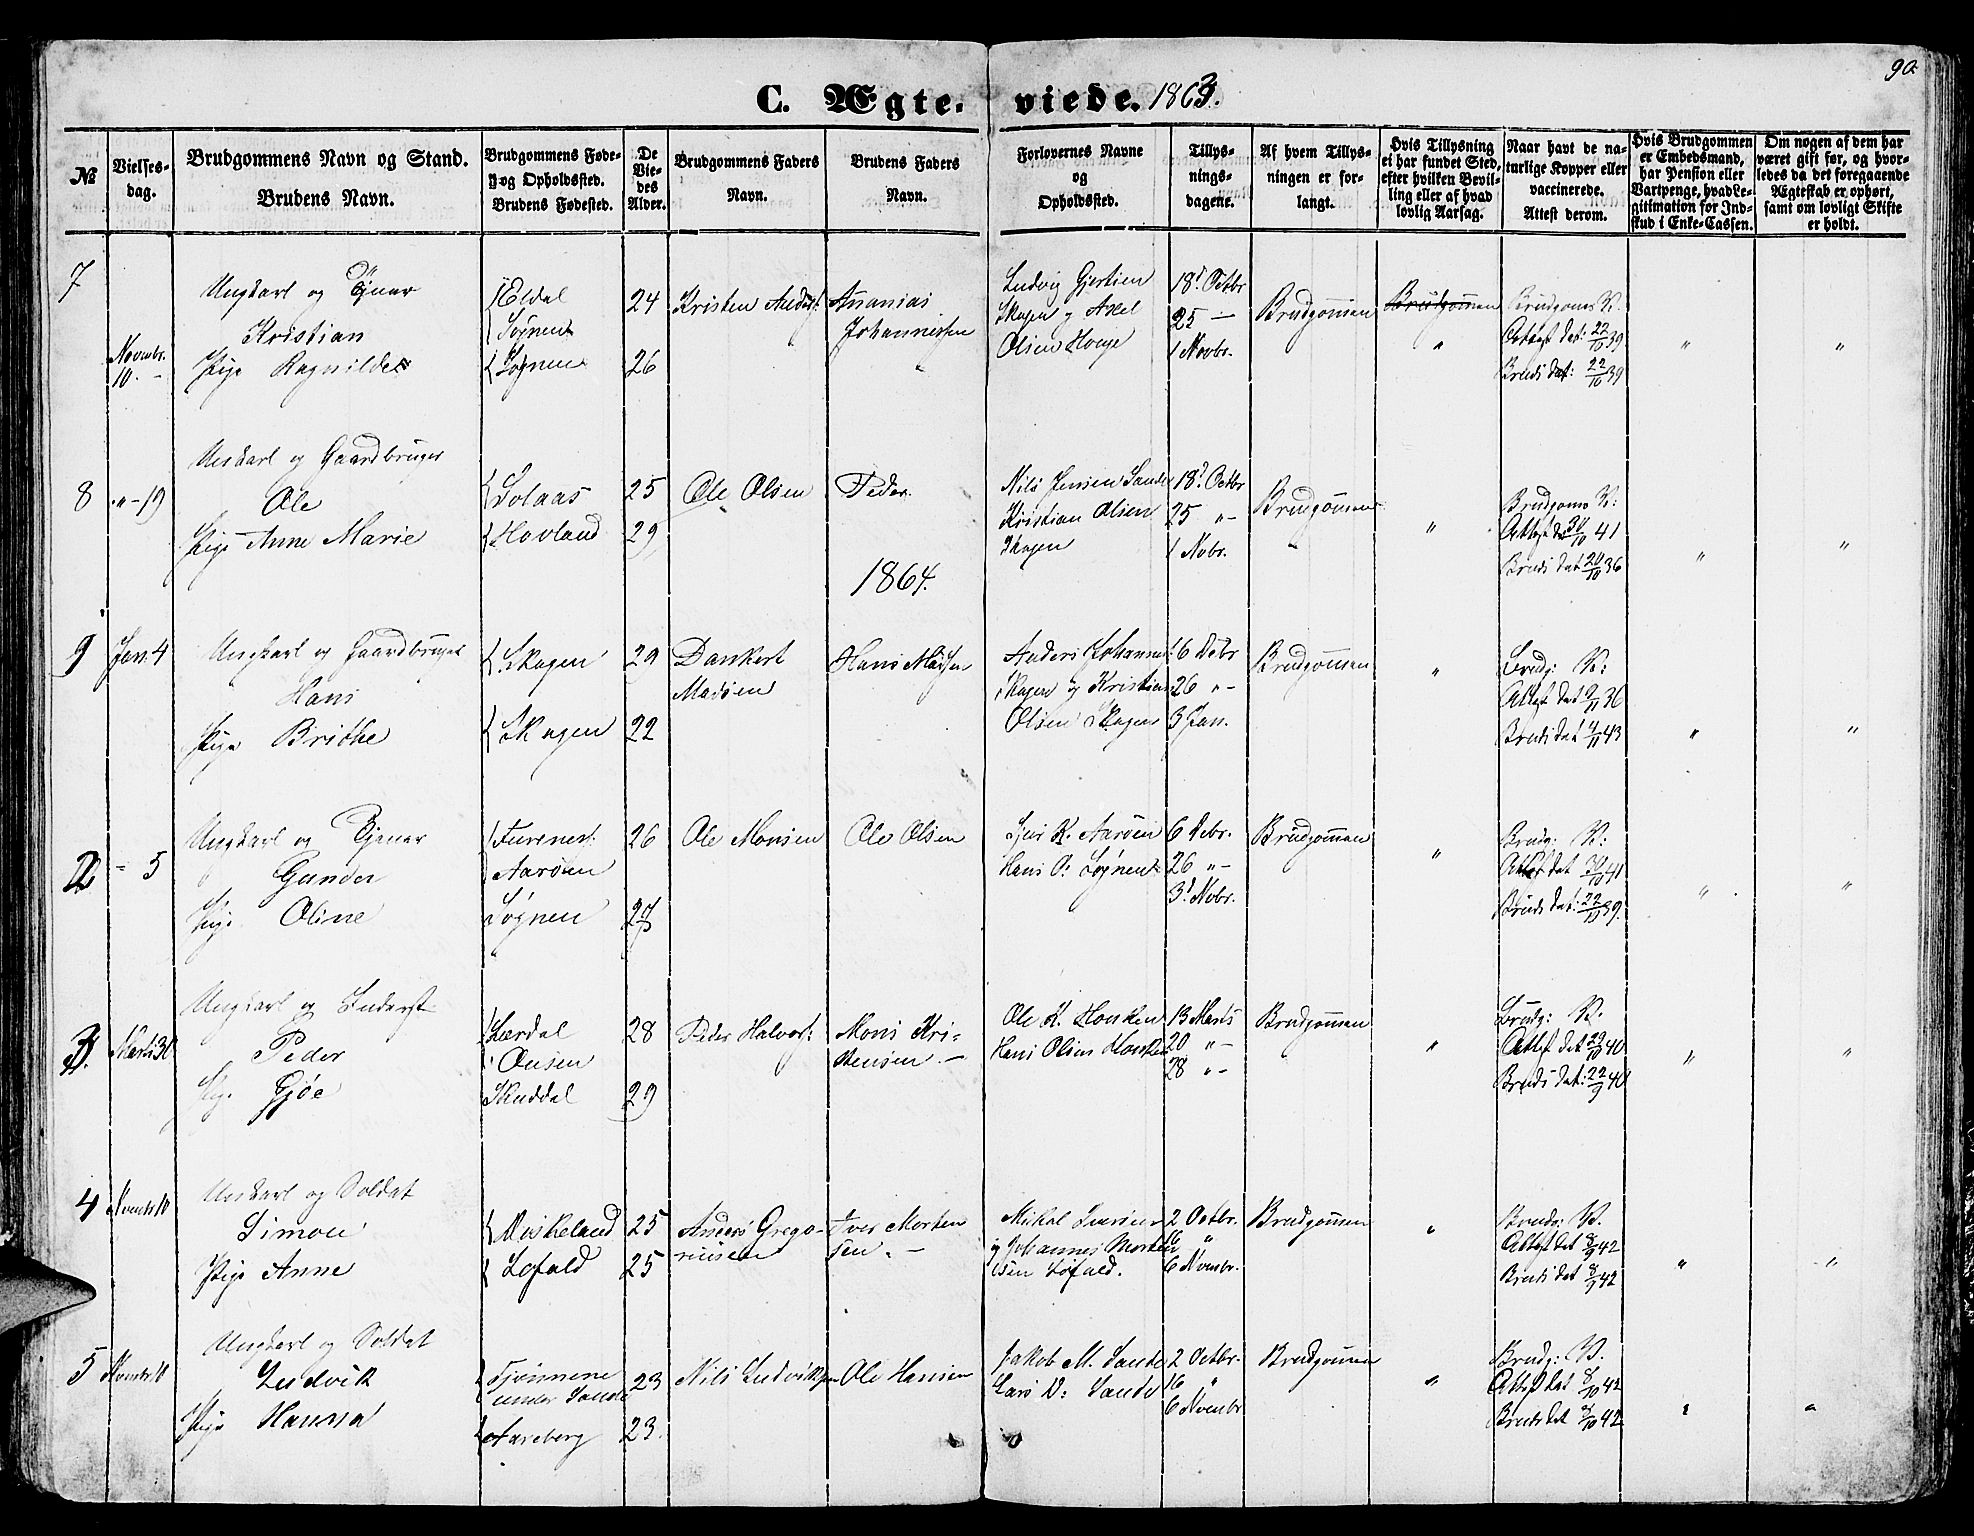 90.
C. Ægte- viede. 1863.
№
Vielses-
dag.
Brudgommens Navn og Stand.
Brudens Navn.
Brudgommens Føde-
og Opholdssted.
Brudens Fødested.
De
Vie-
des
Alder.
Brudgommens Faders
Navn.
Brudens Faders
Navn.
Forlovernes Navne
og
Opholdssted.
Tillys-
nings-
dagene.
Af hvem Tillys-
ningen er for-
langt.
Hvis Tillysning
ei har fundet Sted,
efter hvilken Bevil-
ling eller af hvad
lovlig Aarsag.
Naar havt de na-
turlige Kopper eller
vaccinerede.
Attest derom.
Hvis Brudgommen
er Embedsmand,
har Pension eller
Vartpenge, hvad Le-
gitimation for Ind-
skud i Enke-Cassen.
Om nogen af dem har
været gift før, og hvor-
ledes da det foregaaende
Ægteskab er ophørt,
samt om lovligt Skifte
er holdt.
7
Novembr.
10. –
Ungkarl og Tjener
Kristian
Pige Ragnilde
Eldal
Søgnen
Søgnen
24
26
Kristen Anders:
Ananias
Johannessen
Ludvig Gjertsen
Skagen og Axel
Olsen Houge
18d Octbr
25 –
1 Novbr.
Brudgommen
Brudgommen
"
Brudgoms V:
Attest dat: 22/10 39
Bruds dat: 22/10 39
"
"
8
" – 19
Ungkarl og Gaardbruger
Ole
Pige Anne Marie
Solaas
Hovland
25
29
Ole Olsen
Peder
Nils Jensen Sande
Kristian Olsen
Skagen
18d Octbr
25 " –
1 Nobr.
Brudgommen
"
Brudgoms V:
Attest d 30/10 41
Bruds dat 20/10 36
"
"
1864.
9
Jan. 4
Ungkarl og Gaardbruger
Hans
Pige Brithe
Skagen
Skagen
29
22
Dankert
Madsen
Hans Madsen
Anders Johannes
Skagen og Kristian
Olsen Skagen
6 Debr
26 " –
3 Jan.
Brudgommen
"
Brudg: V:
Attest dat 2/11 36
Bruds dat 4/11 43
"
"
2
– 5
Ungkarl og Tjener
Gunder
Pige Oline
Furenes:
Aarøen
Søgnen
26
27
Ole Monsen
Ole Olsen
K. Aarøen
Hans O: Søgnen
6 Debr.
26 " –
3d Nobr.
Brudgommen
"
Brudg: V:
Attest dat 30/10 41
Bruds dat: 22/10 39.
"
"
3.
Marts 30
Ungkarl og Inderst
Peder
Pige Gjøe
Lærdal
Ousen
Skuddal
28
29
Peder Halvors:
Mons Kri-
stensen. –
Ole K. Housken
Hans Olsen Housken
13 Marts
20 " –
28 " –
Brudgommen
"
Brudg: V.
Attest dat 29/10 40
Bruds dat: 22/9 40
"
"
4
Novembr 10
Ungkarl og Soldat
Simon
Pige Anne
Miskeland
Lofald
25
25
Anders Grego-
riusen
Iver Morten
sen. –
Mikal Iversen
og Johannes Morten
sen Lofald.
2 Octbr.
16 "
6 Novembr.
Brudgommen
"
Brudg: V.
Attest dat 8/9 42
Bruds dat 8/9 42
"
"
5
Novembr 10
Ungkarl og Soldat
Ludvik
Pige Hanna
Tjønnene
under Sande
Aareberg
23
23.
Nils Ludviksen
Ole Hansen
Jakob M. Sande
Lars O: Sande
2 Octbr.
16 "
6 Novembr
Brudgommen
"
Brudg: V.
Attest dat 8/10 42
Bruds dat 8/10 42
"
"